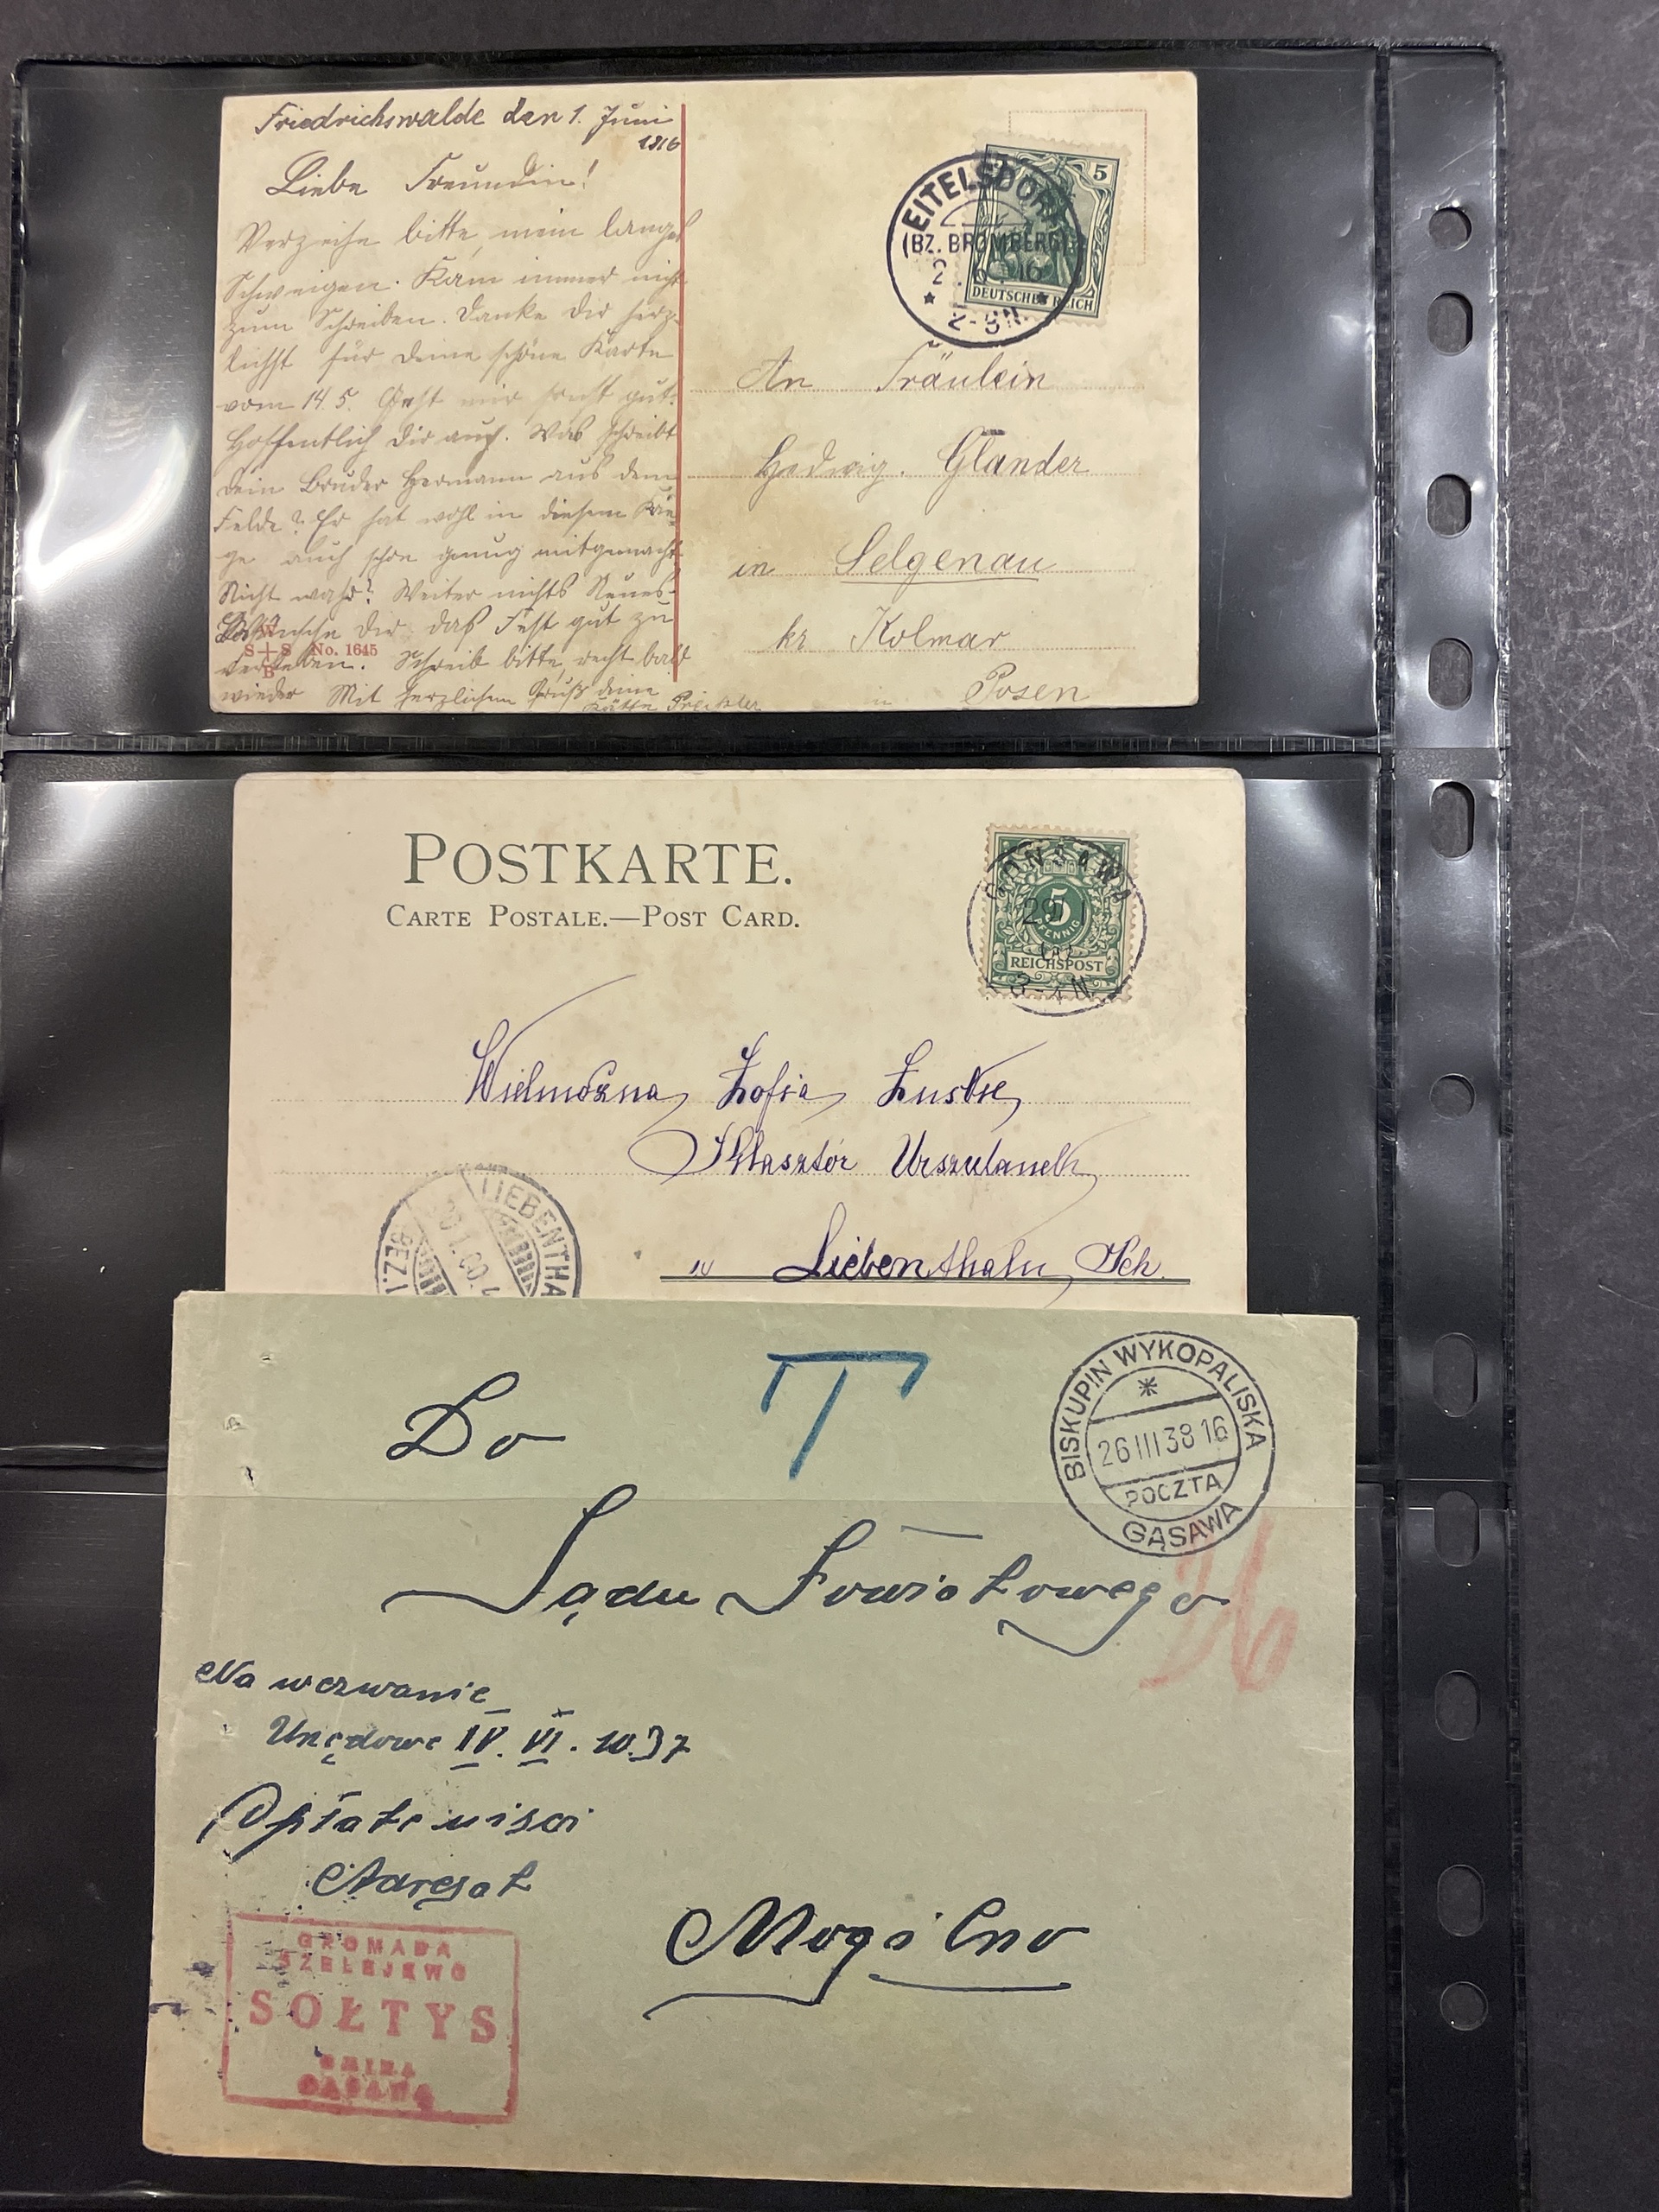 Friedrichswalde den 1. Juni
1916
Liebe Freundin!
Verzeihe bitte, mein langes
Schweigen. Kam immer nicht
zum Schreiben. Danke Dir herz-
lichst für deine schöne Karte
vom 14.5. Geht mir sonst gut.
Hoffentlich Dir auch. Was schreibt
Dein Bruder Hermann aus dem
Felde? Er hat wohl in diesem Krie-
ge auch schon genug mitgemacht
Nicht wahr? Weiter nichts Neues.
Dir das Fest gut zu
verleben. Schreib bitte, recht bald
wieder Mit herzlichem Gruß deine
Käthe
W
S+S No. 1645
B
EITELSDORF
(BZ. BROMBERG)
2.6.16
DEUTSCHES REICH
5
An Fräulein
Hedwig. Glander
in Selgenau
kr Kolmar
in Posen
POSTKARTE.
CARTE POSTALE.—POST CARD.
GONSAWA
29 1
5
PFENNIG
REICHSPOST
3-4N
Wielmożna Zofia
Klasztor Urszulanek
w Liebenthalu Sch.
LIEBENTHA
BEZ.
Do
T
BISKUPIN WYKOPALISKA
26 III 38 16
POCZTA
GĄSAWA
Sądu Powiatowego
36
Na wezwanie
Urzędowe IV. VI. 10.37
Opłate uiści
Adresat
Mogilno
GROMADA
SZELEJEWO
SOŁTYS
GMINA
GĄSAWA